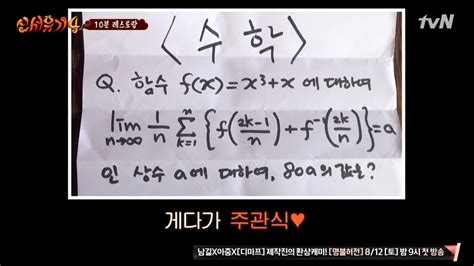 신서유기4 10분 레스토랑 tvN
< 수 학 >
Q. 함수 f(x)=x³+x 에 대하여
lim n→∞ 1/n Σ k=1 n {f((2k-1)/n)+f⁻¹(2k/n)}=a
인 상수 a에 대하여, 80a의 값은?
게다가 주관식♥
남길X아중X[디마프] 제작진의 환상케미! [명불허전] 8/12 [토] 밤 9시 첫 방송